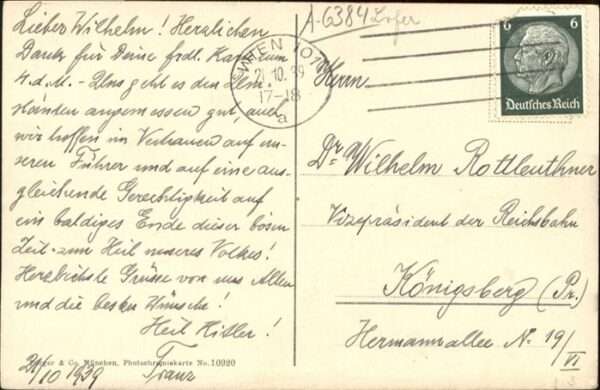 Lieber Wilhelm! Herzlichen
Dank für Deine frdl. Karte vom
4. d. M. - Uns geht es den Um-
ständen angemessen gut, auch
wir hoffen im Vertrauen auf un-
seren Führer und auf eine aus-
gleichende Gerechtigkeit auf
ein baldiges Ende dieser bösen
Zeit - zum Heil unseres Volkes!
Herzlichste Grüsse von uns Allen
und die besten Wünsche!
Heil Hitler!
Franz
21/10 1939
& Co. München, Photochromiekarte No. 10920
A-6384 Lofer
WIEN 101
21.10.39
17-18
a
6 6
Deutsches Reich
Herrn
Dr. Wilhelm Rottleuthner
Vizepräsident der Reichsbahn
Königsberg (Pr.)
Hermannallee No. 19/
VI